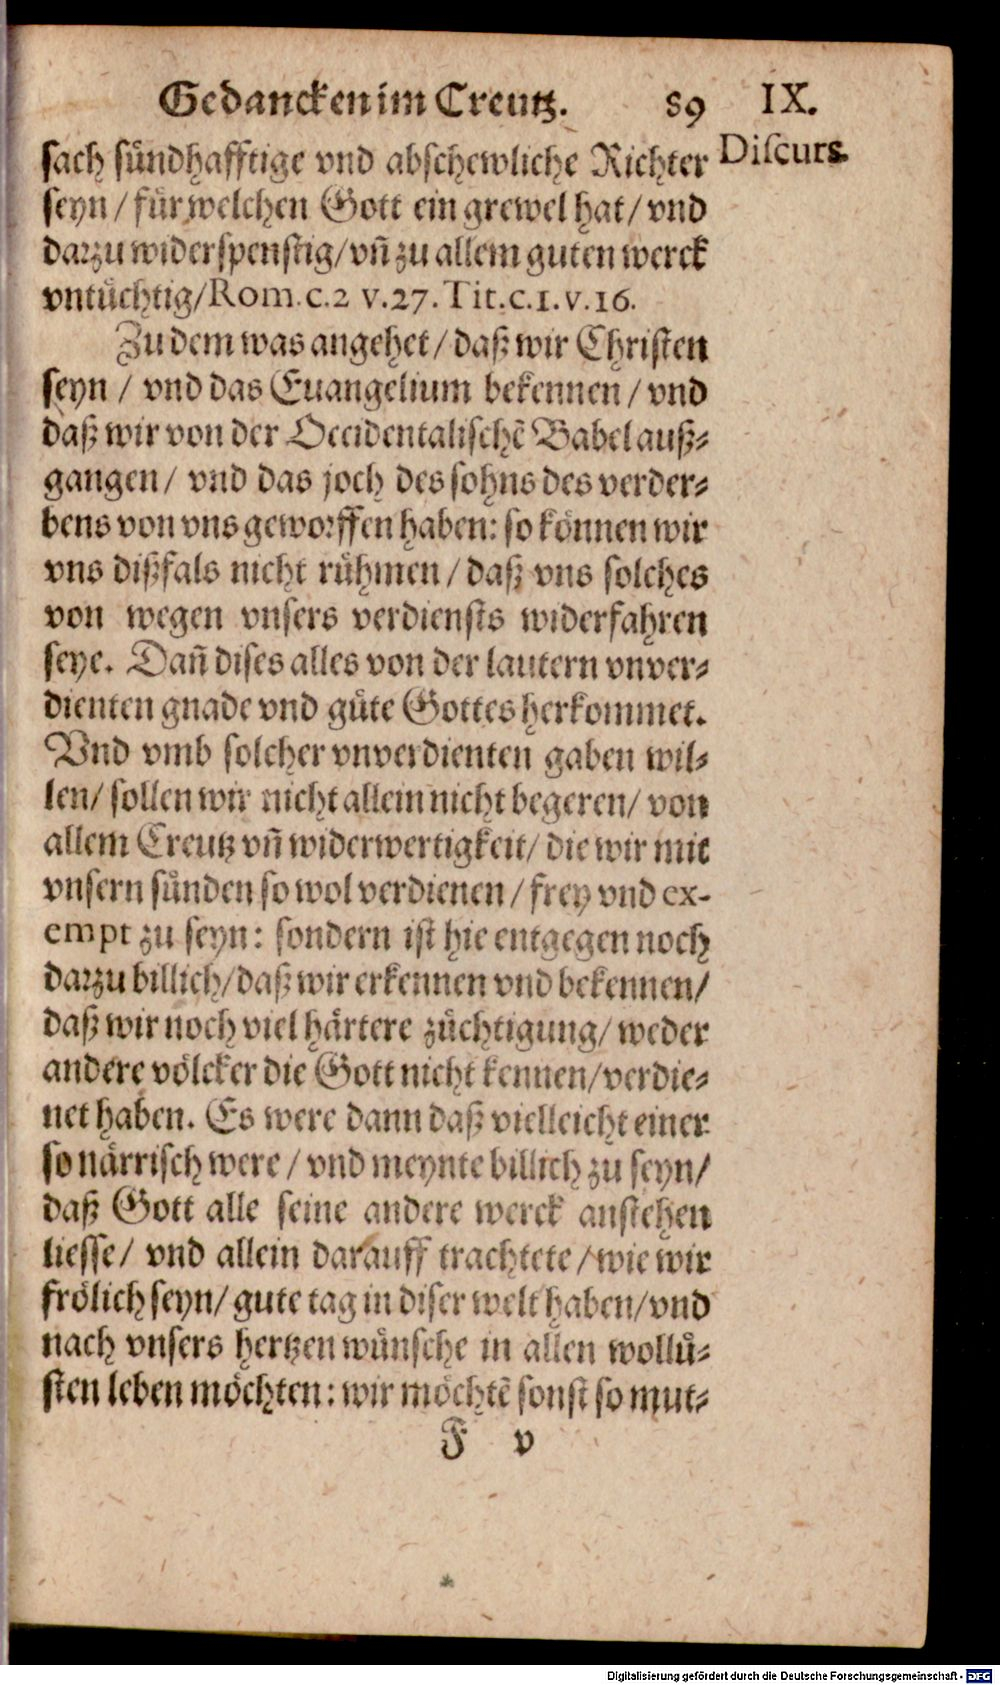 Gedancken im Creutz. 89 IX.
Discurs.
sach sündhafftige vnd abschewliche Richter
seyn / für welchen Gott ein grewel hat / vnd
darzu widerspenstig / vñ zu allem guten werck
vntüchtig / Rom. c. 2 v. 27. Tit. c. 1. v. 16.
Zu dem was angehet / daß wir Christen
seyn / vnd das Euangelium bekennen / vnd
daß wir von der Occidentalischẽ Babel auß⸗
gangen / vnd das joch des sohns des verder⸗
bens von vns geworffen haben: so können wir
vns dißfals nicht rühmen / daß vns solches
von wegen vnsers verdiensts widerfahren
seye. Dañ dises alles von der lautern vnver⸗
dienten gnade vnd güte Gottes herkommet.
Vnd vmb solcher vnverdienten gaben wil⸗
len / sollen wir nicht allein nicht begeren / von
allem Creutz vñ widerwertigkeit / die wir mit
vnsern sünden so wol verdienen / frey vnd ex-
empt zu seyn: sondern ist hie entgegen noch
darzu billich / daß wir erkennen vnd bekennen /
daß wir noch viel härtere züchtigung / weder
andere völcker die Gott nicht kennen / verdie⸗
net haben. Es were dann daß vielleicht einer
so närrisch were / vnd meynte billich zu seyn /
daß Gott alle seine andere werck anstehen
liesse / vnd allein darauff trachtete / wie wir
frölich seyn / gute tag in diser welt haben / vnd
nach vnsers hertzen wünsche in allen wollü⸗
sten leben möchten: wir möchtẽ sonst so mut⸗
F v
Digitalisierung gefördert durch die Deutsche Forschungsgemeinschaft - DFG